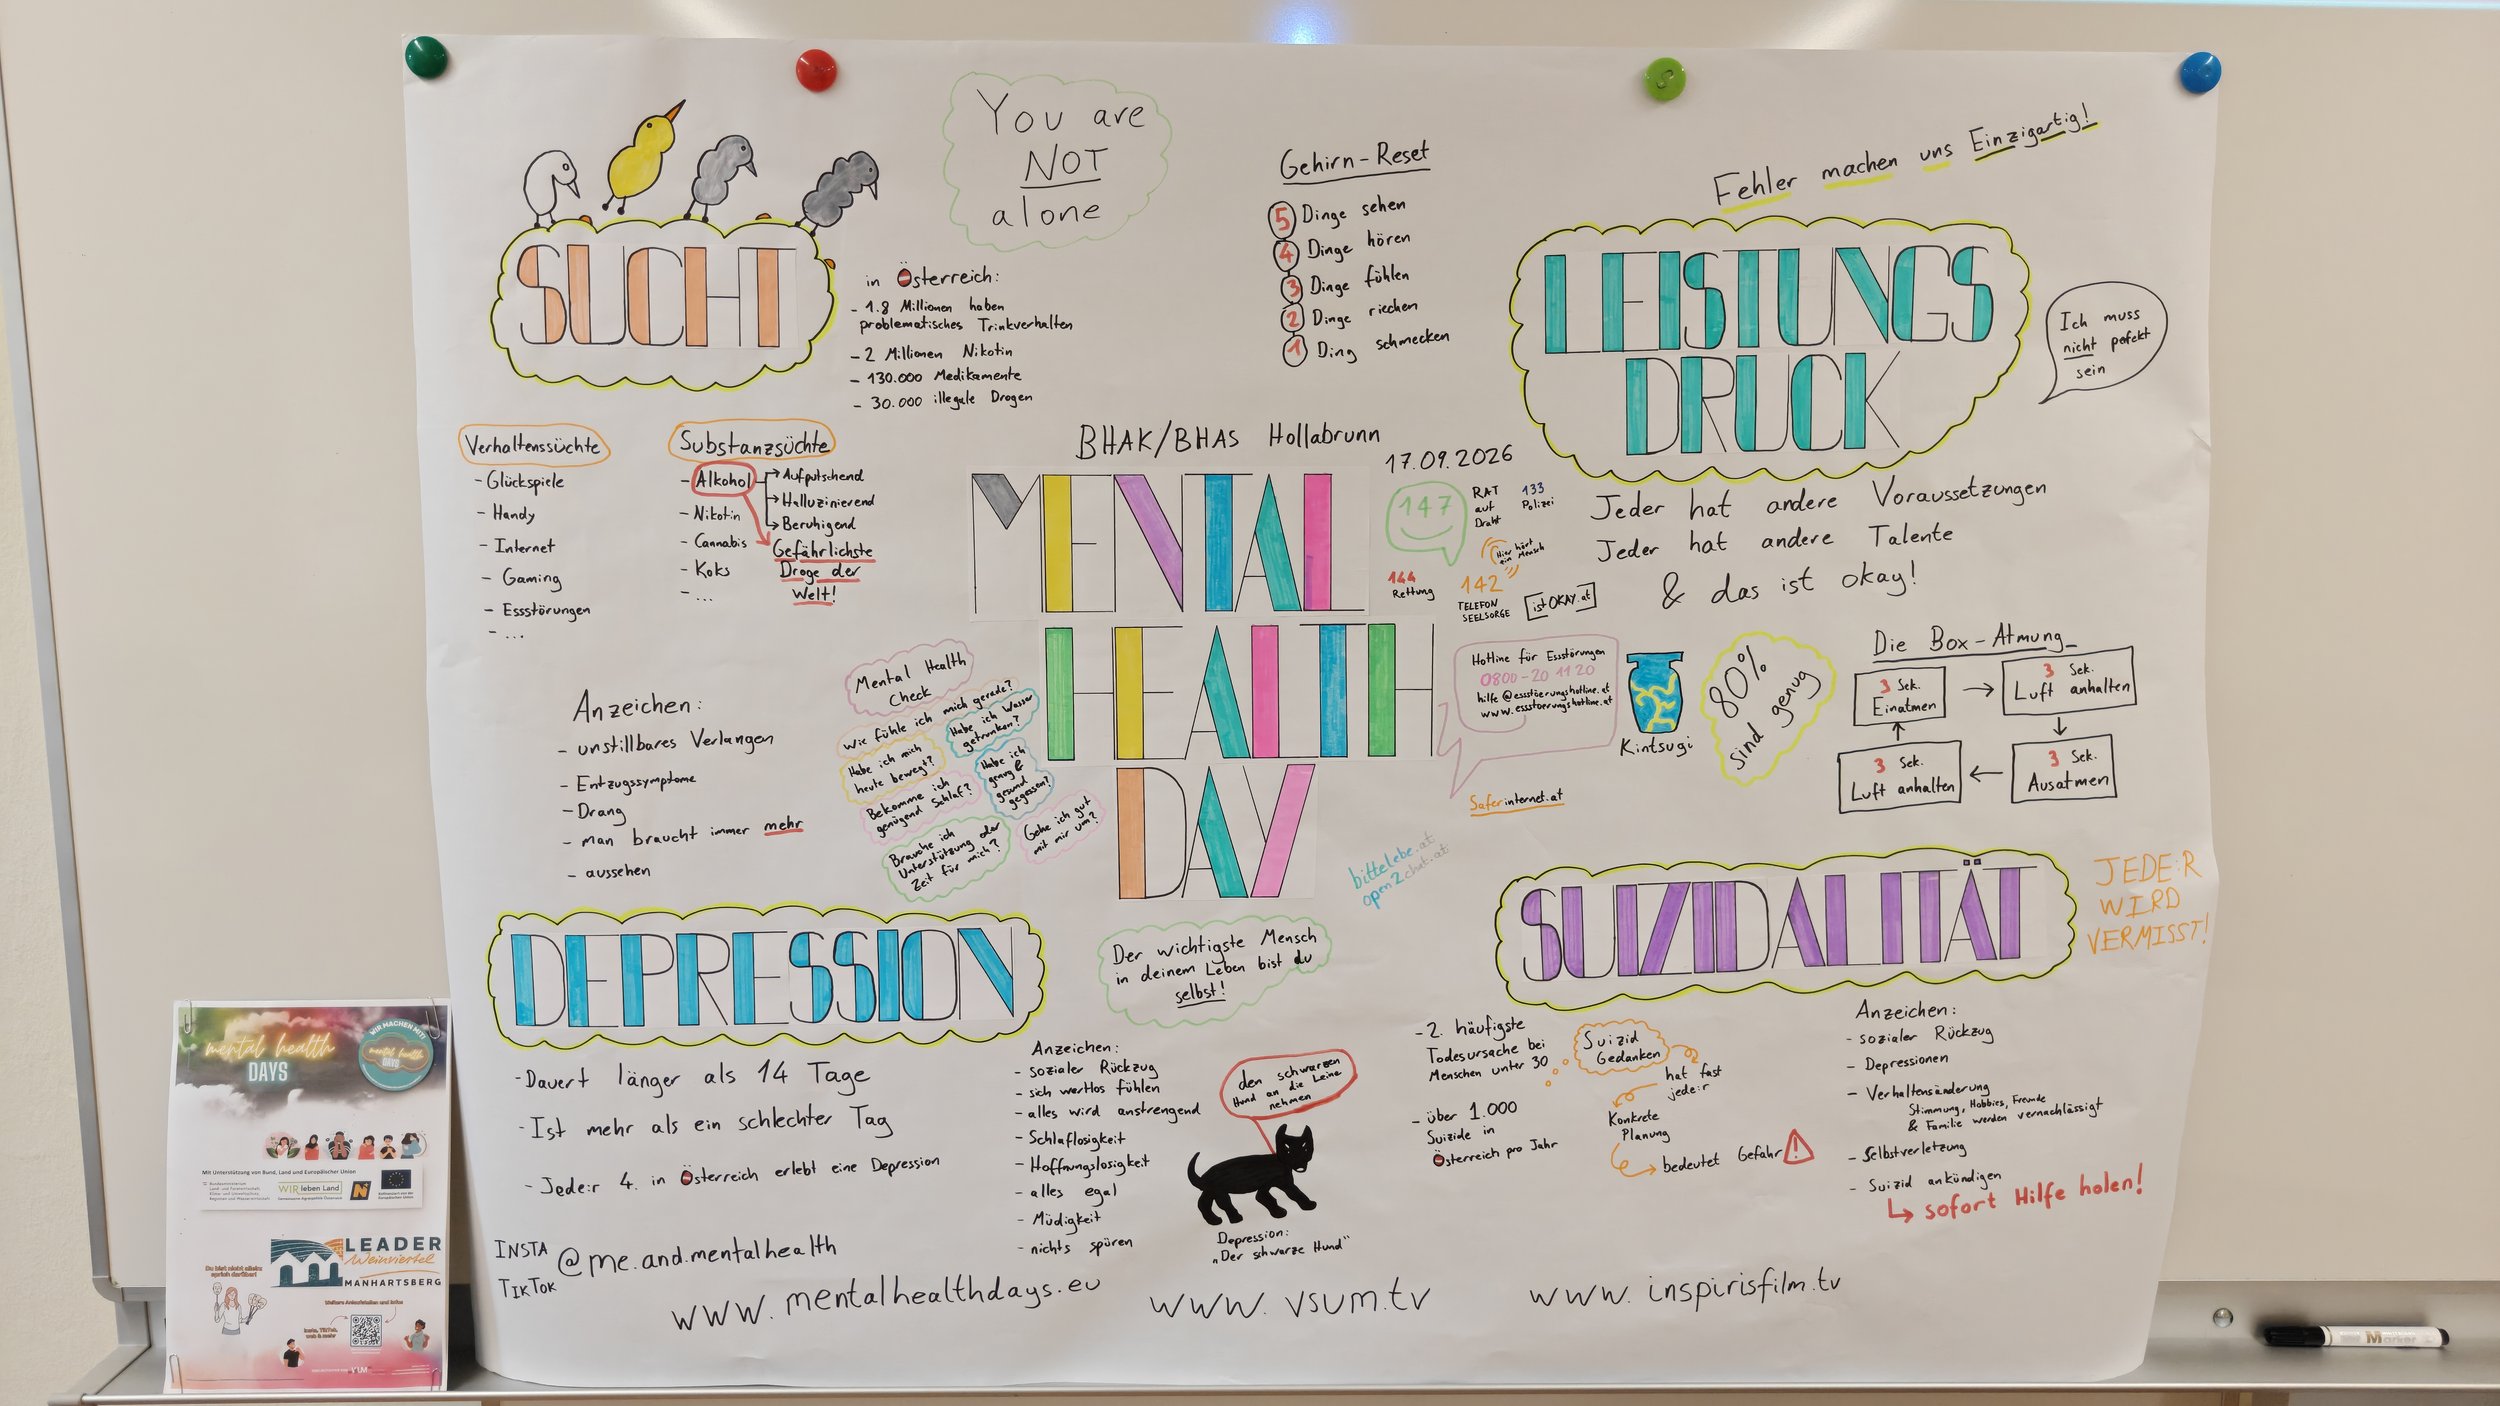 You are
NOT
alone
SUCHT
in Österreich:
- 1.8 Millionen haben
problematisches Trinkverhalten
- 2 Millionen Nikotin
- 130.000 Medikamente
- 30.000 illegale Drogen
Verhaltenssüchte
- Glückspiele
- Handy
- Internet
- Gaming
- Essstörungen
- ...
Substanzsüchte
- Alkohol
→ Aufputschend
→ Halluzinierend
→ Beruhigend
- Nikotin
- Cannabis
- Koks
- ...
Gefährlichste
Droge der
Welt!
Anzeichen:
- unstillbares Verlangen
- Entzugssymptome
- Drang
- man braucht immer mehr
- aussehen
Gehirn-Reset
5 Dinge sehen
4 Dinge hören
3 Dinge fühlen
2 Dinge riechen
1 Ding schmecken
Fehler machen uns Einzigartig!
LEISTUNGS
DRUCK
Ich muss
nicht pefekt
sein
Jeder hat andere Voraussetzungen
Jeder hat andere Talente
& das ist okay!
BHAK/BHAS Hollabrunn
17.09.2026
MENTAL
HEALTH
DAY
147
RAT
auf
Draht
133
Polizei
Hier hört
ein Mensch
144
Rettung
142
TELEFON
SEELSORGE
istOKAY.at
Hotline für Essstörungen
0800-20 11 20
hilfe@essstoerungshotline.at
www.essstoerungshotline.at
Kintsugi
80%
sind genug
Die Box-Atmung
3 Sek.
Einatmen
3 Sek.
Luft anhalten
3 Sek.
Ausatmen
3 Sek.
Luft anhalten
Saferinternet.at
bittelebe.at
open2chat.at
Mental Health
Check
Wie fühle ich mich gerade?
Habe ich Wasser
getrunken?
Habe ich mich
heute bewegt?
Habe ich
genug &
gesund
gegessen?
Bekomme ich
genügend Schlaf?
Brauche ich
Unterstützung oder
Zeit für mich?
Gehe ich gut
mit mir um?
DEPRESSION
- Dauert länger als 14 Tage
- Ist mehr als ein schlechter Tag
- Jede:r 4. in Österreich erlebt eine Depression
Anzeichen:
- sozialer Rückzug
- sich wertlos fühlen
- alles wird anstrengend
- Schlaflosigkeit
- Hoffnungslosigkeit
- alles egal
- Müdigkeit
- nichts spüren
Der wichtigste Mensch
in deinem Leben bist du
selbst!
den schwarzen
Hund an die Leine
nehmen
Depression:
„Der schwarze Hund"
SUIZIDALITÄT
JEDE:R
WIRD
VERMISST!
- 2. häufigste
Todesursache bei
Menschen unter 30
- über 1.000
Suizide in
Österreich pro Jahr
Suizid
Gedanken
hat fast
jede:r
Konkrete
Planung
bedeutet Gefahr !
Anzeichen:
- sozialer Rückzug
- Depressionen
- Verhaltensänderung
Stimmung, Hobbies, Freunde
& Familie werden vernachlässigt
- Selbstverletzung
- Suizid ankündigen
↳ sofort Hilfe holen!
INSTA
TIKTOK
@me.and.mentalhealth
www.mentalhealthdays.eu
www.vsum.tv
www.inspirisfilm.tv
mental health
DAYS
WIR MACHEN MIT!
mental health
DAYS
Mit Unterstützung von Bund, Land und Europäischer Union
WIR leben Land
LEADER
Weinviertel
MANHARTSBERG
Du bist nicht allein:
sprich darüber!
Insta, TikTok,
web & mehr
Marker